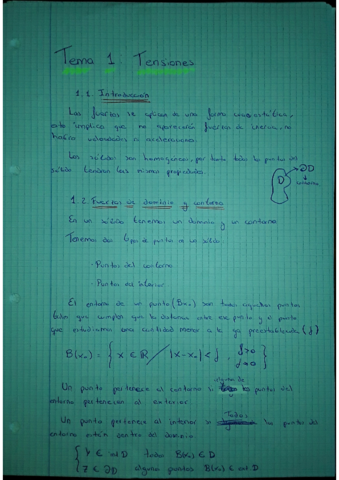 Tema 1: Tensiones
1.1. Introducción
Las fuerzas se aplican de una forma cuasiestática,
esto implica que no aparecerán fuerzas de inercia, no
habrá velocidades ni aceleraciones.
Los sólidos son homogéneos, por tanto todo los puntos del
sólido tendrán las mismas propiedades.
D → ∂D
contorno
1.2 Fuerzas de dominio y contorno
En un sólido tenemos un dominio y un contorno
Tenemos dos tipos de puntos en un sólido:
· Puntos del contorno
· Puntos del interior
El entorno de un punto (Bx₀) son todos aquellos puntos
que cumplen que la distancia entre ese punto y el punto
que estudiamos sea cantidad menor a la ya preestablecida (δ)
B(x₀) = { x ∈ ℝ / |x-x₀| < δ ,
Un punto pertenece al contorno si alguno de los puntos del
entorno pertenecen al exterior
Un punto pertenece al interior si Todos los puntos del
entorno están dentro del dominio
int D todo B(x) ∈ D
∈ ∂D alguno puntos B(x) ∈ ext D